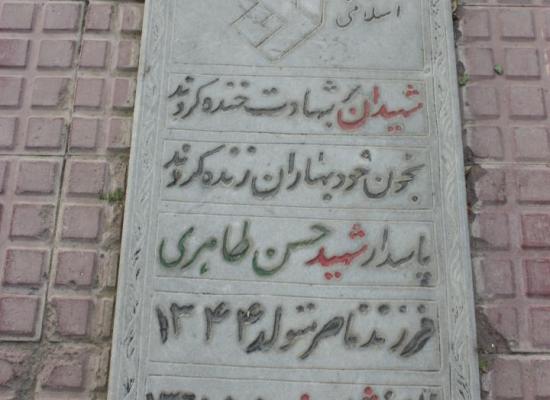 اسلامی
شهیدان بر شهادت خنده کردند
بخون خود بهاران زنده کردند
پاسدار شهید حسن طاهری
فرزند ناصر متولد ۱۳۴۴